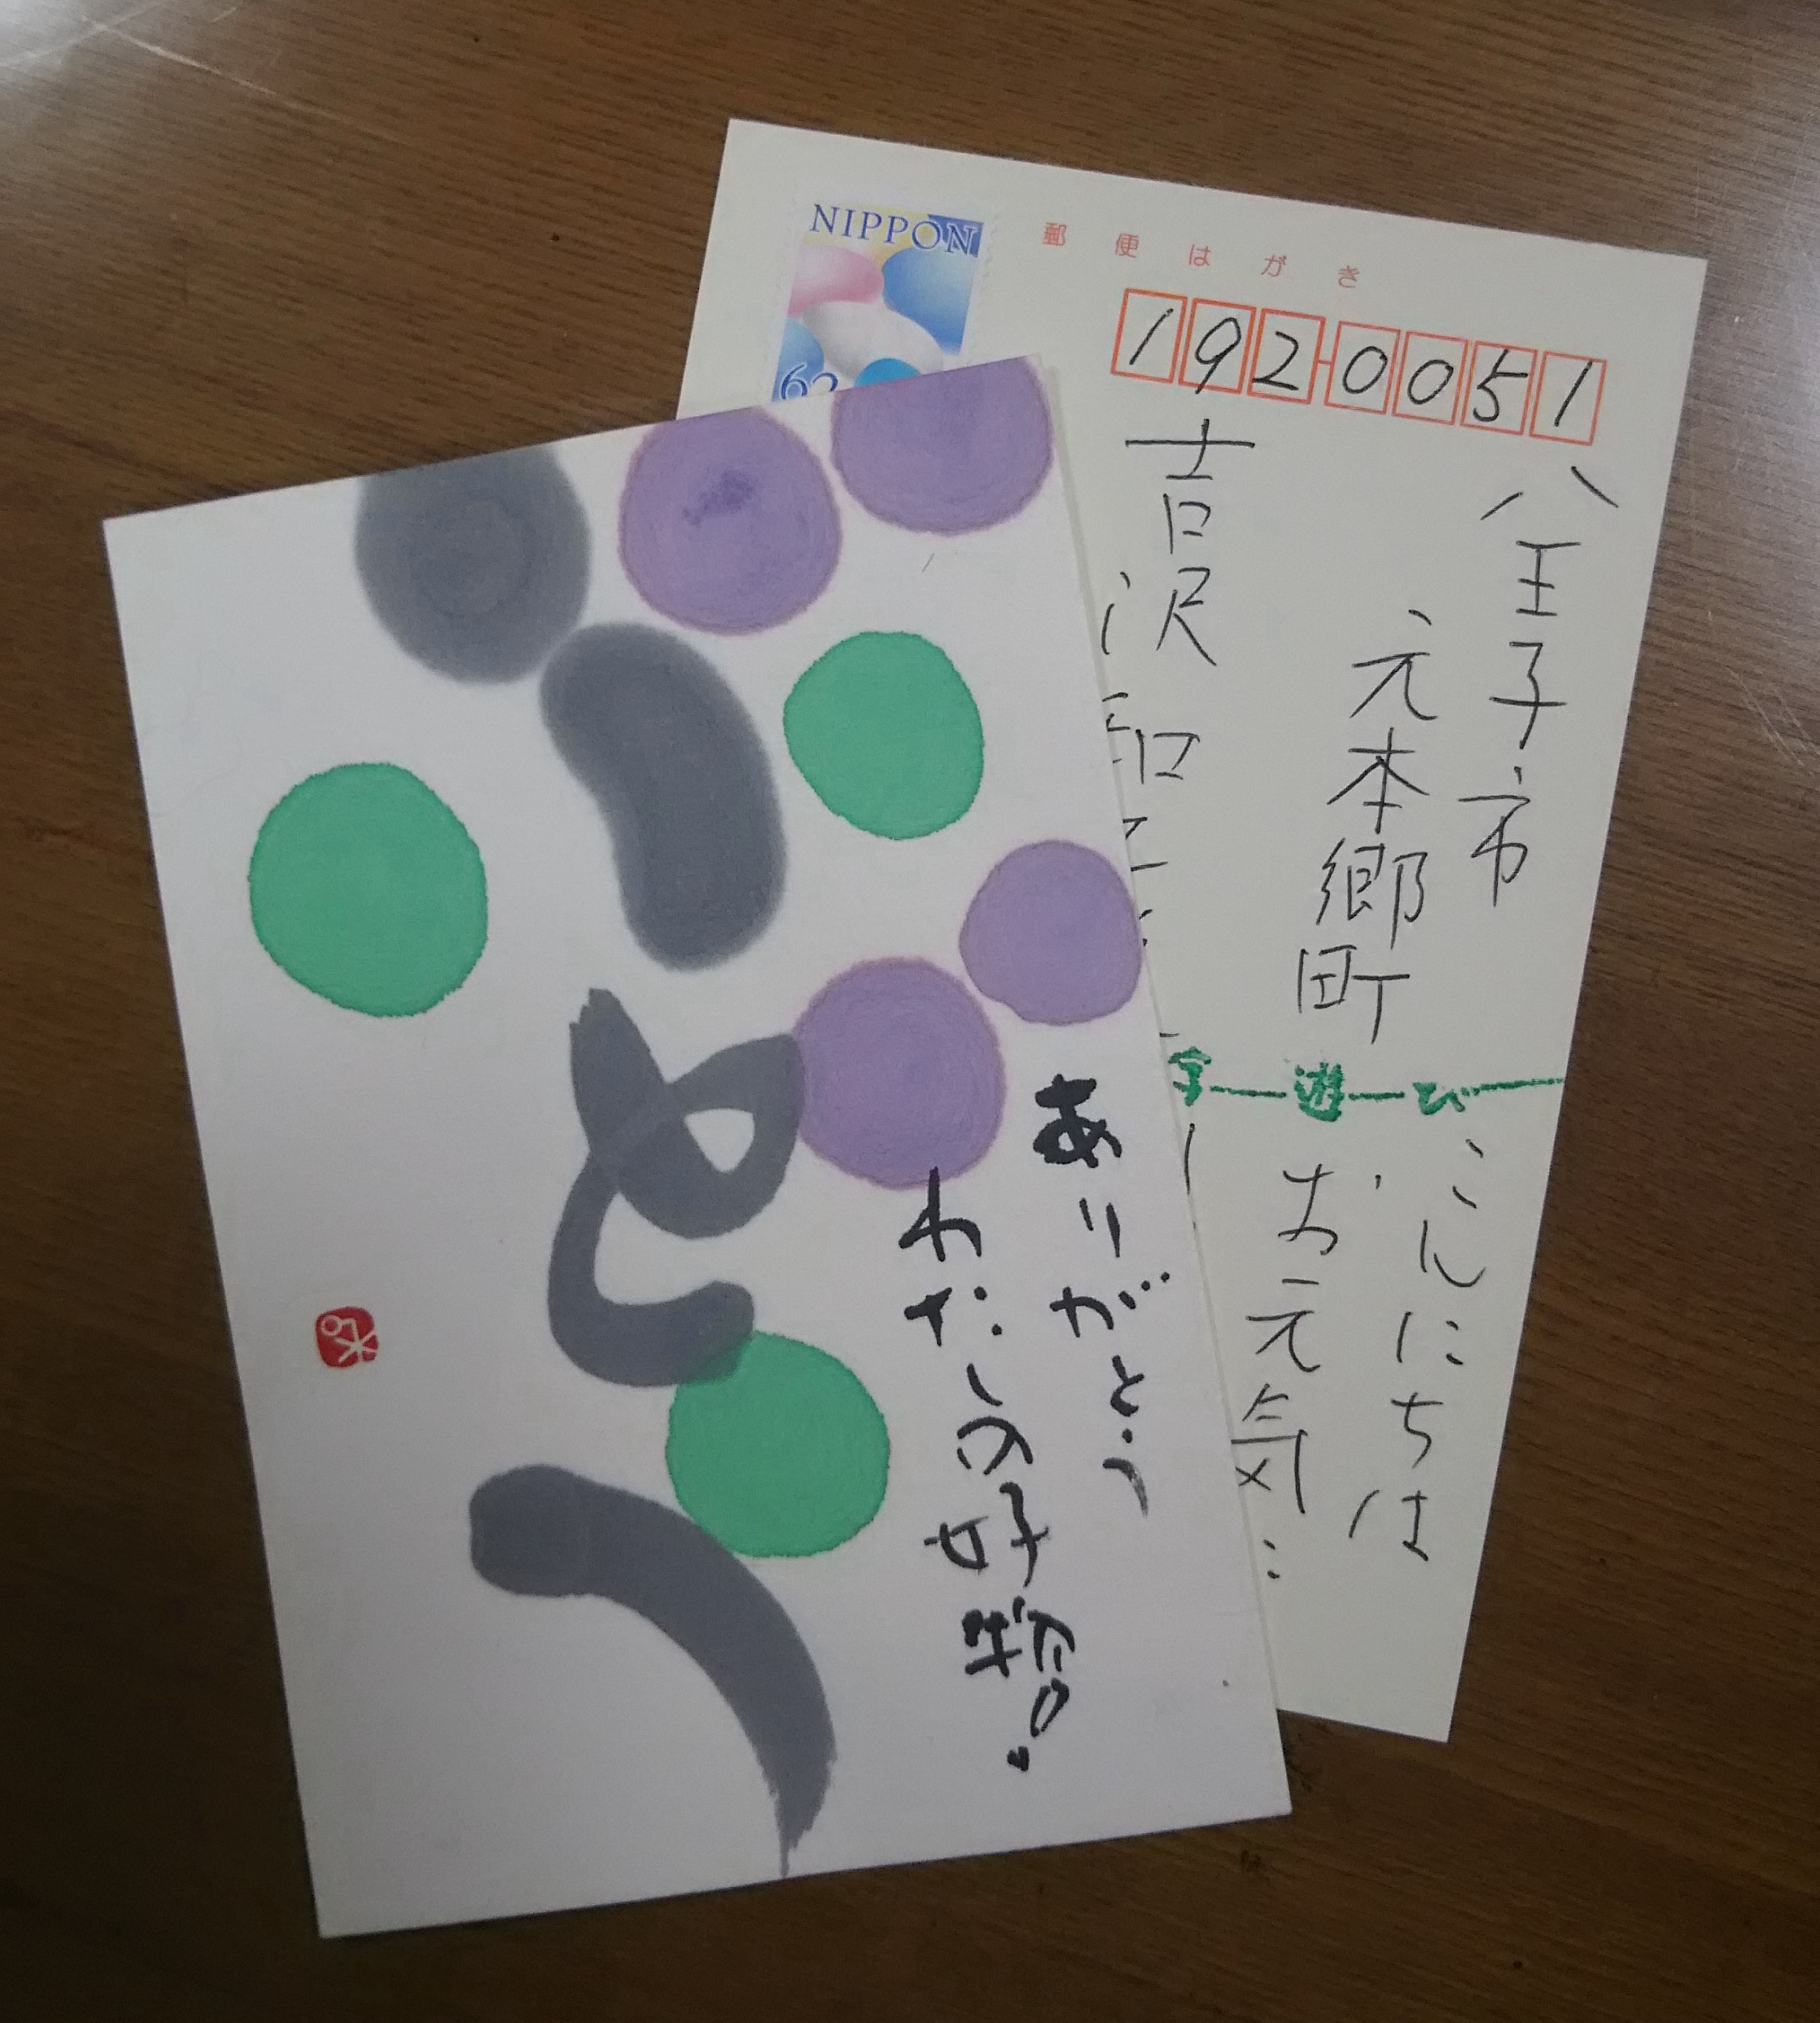 NIPPON
62
郵便はがき
192-0051
八王子市
元本郷町
吉沢和
字遊び
こんにちは
お元気
ありがとう
わたしの好齢。